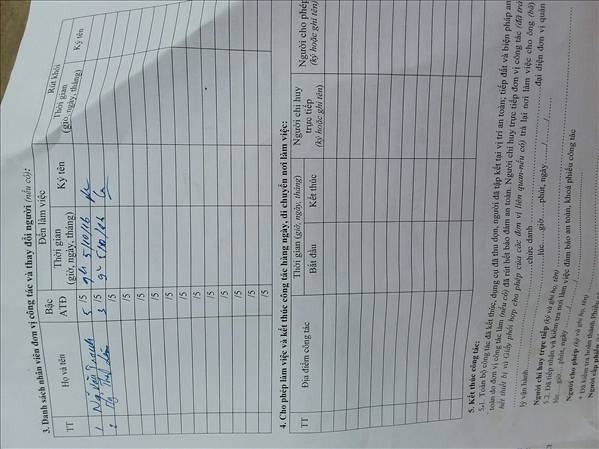 3. Danh sách nhân viên đơn vị công tác và thay đổi người (nếu có):
TT Họ và tên Bậc ATĐ Đến làm việc Rút khỏi
Thời gian (giờ, ngày, tháng) Ký tên Thời gian (giờ, ngày, tháng) Ký tên
1 5 /5 9h 5/10/16
3 /5 9h 5/10/16
/5
/5
/5
/5
/5
/5
/5
/5
/5
/5
4. Cho phép làm việc và kết thúc công tác hàng ngày, di chuyển nơi làm việc:
TT Địa điểm công tác Thời gian (giờ, ngày, tháng) Người chỉ huy trực tiếp (ký hoặc ghi tên) Người cho phép (ký hoặc ghi tên)
Bắt đầu Kết thúc
5. Kết thúc công tác:
5.1. Toàn bộ công tác đã kết thúc, dụng cụ đã thu dọn, người đã tập kết tại vị trí an toàn; tiếp đất và biện pháp an
toàn do đơn vị công tác làm (nếu có) đã rút hết bảo đảm an toàn. Người chỉ huy trực tiếp đơn vị công tác (đã trả
hết thiết bị và Giấy phối hợp cho phép của các đơn vị liên quan-nếu có) trả lại nơi làm việc cho ông (bà)
chức danh đại diện đơn vị quản
lý vận hành lúc......giờ......phút, ngày....../....../......
Người chỉ huy trực tiếp (ký và ghi họ, tên)
5.2. Đã tiếp nhận và kiểm tra nơi làm việc đảm bảo an toàn, khoá phiếu công tác
lúc......giờ......phút, ngày....../....../......
Người cho phép (ký và ghi họ, tên)
* Đã kiểm tra hoàn thành Phiếu
Người cấp phiếu